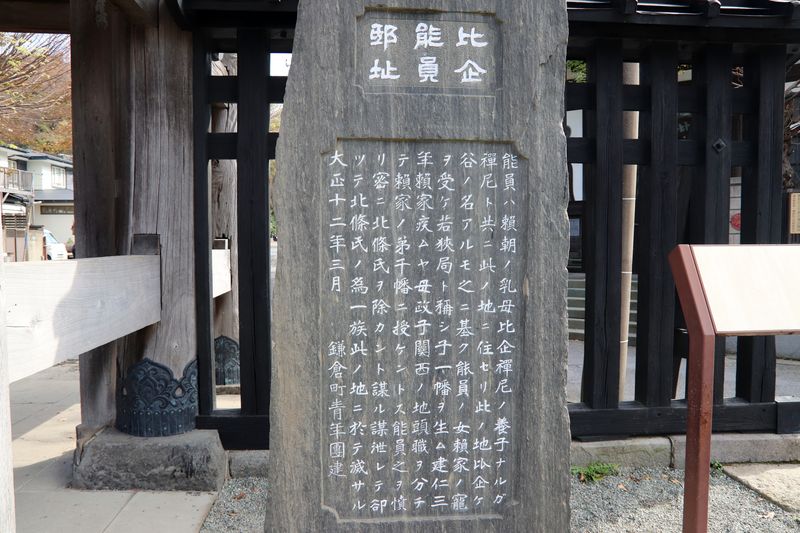 比企
能員
邸址
能員ハ頼朝ノ乳母比企禪尼ノ養子ナルガ
禪尼ト共ニ此ノ地ニ住セリ此ノ地比企ケ
谷ノ名アルモ之ニ基ク能員ノ女頼家ノ寵
ヲ受ケ若狹局ト稱シ子一幡ヲ生ム建仁三
年頼家疾ムヤ母政子關西ノ地頭職ヲ分チ
テ頼家ノ弟千幡ニ授ケントス能員之ヲ憤
リ密ニ北條氏ヲ除カント謀ル謀泄レテ卻
ツテ北條氏ノ為一族此ノ地ニ於テ滅サル
大正十二年三月　鎌倉町青年團建